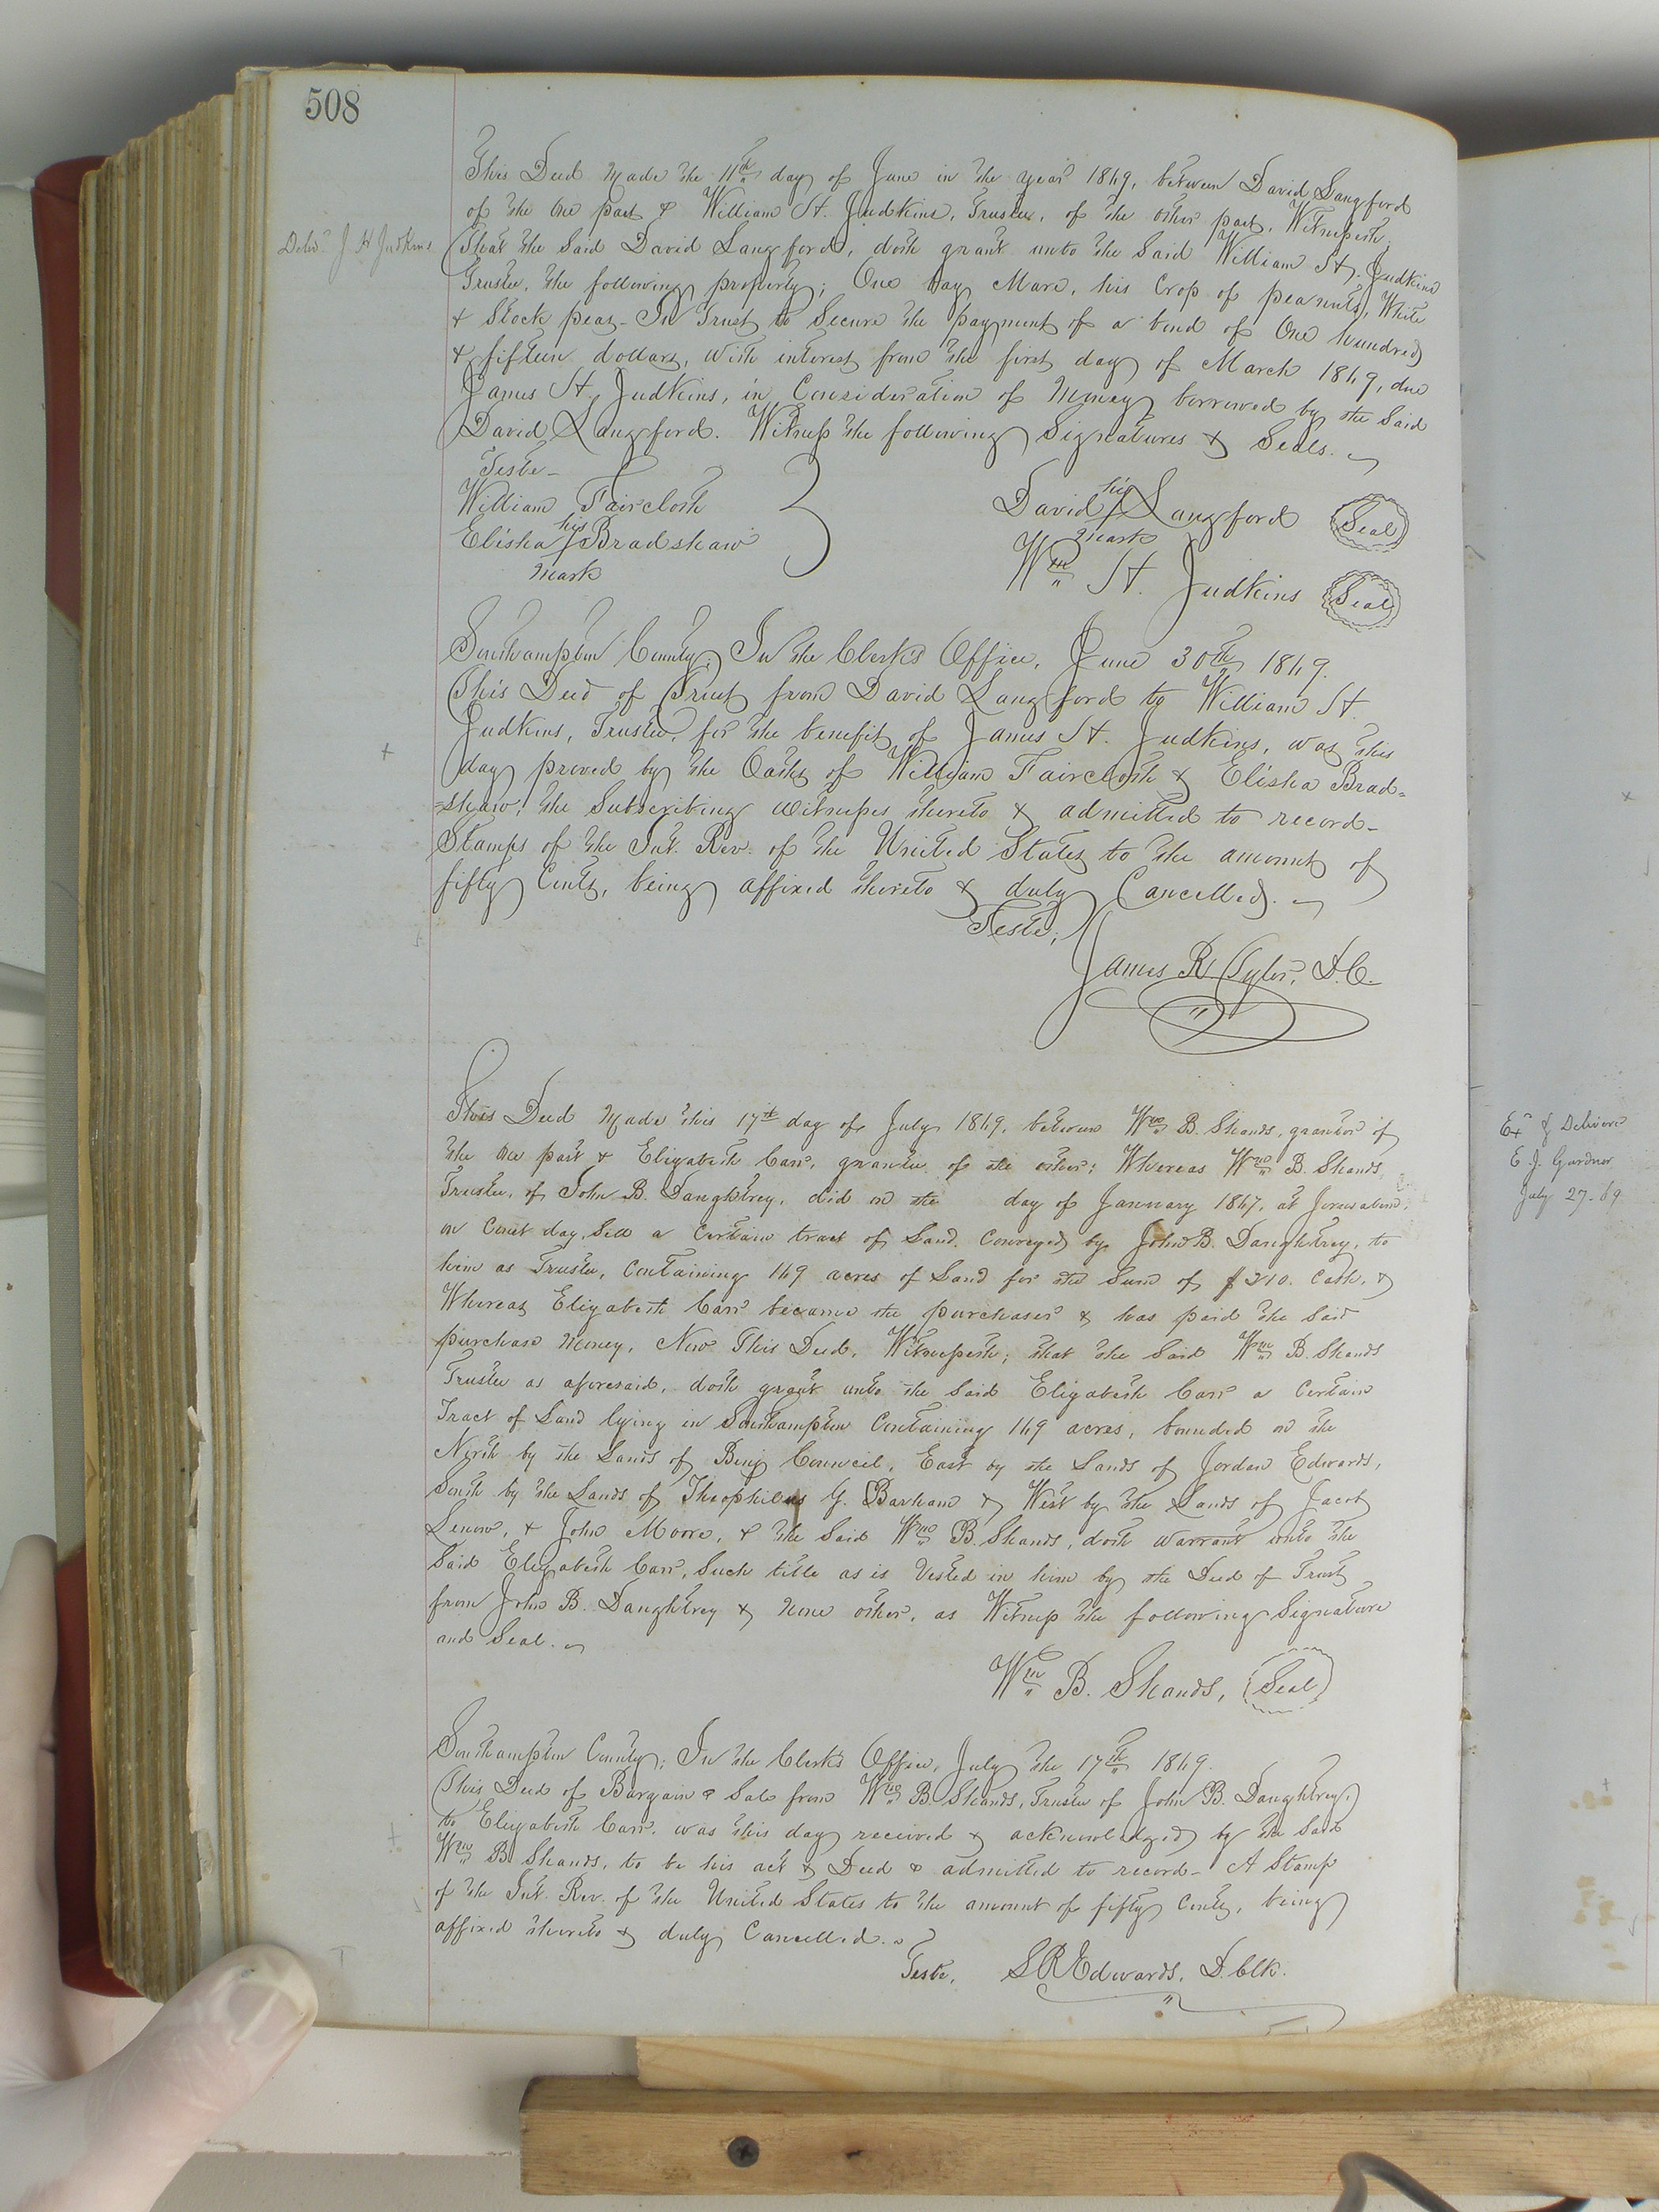 508
This Deed Made the 11th day of June in the year 1869, between David Langford
of the One part & William H. Judkins, Trustee, of the other part, Witnesseth;
Delivd J H Judkins
That the Said David Langford, doth grant unto the Said William H. Judkins
Trustee, the following property; One bay Mare, his Crop of peanuts, White
& Stock peas. In Trust to Secure the payment of a bond of One hundred
& fifteen dollars, with interest from the first day of March 1869, due
James H. Judkins, in Consideration of Money borrowed by the Said
David Langford. Witness the following Signatures & Seals.
Teste
William Faircloth
Elisha his Bradshaw
mark
David his Langford Seal
mark
Wm H. Judkins Seal
Southampton County; In the Clerk's Office, June 30th 1869.
This Deed of Trust from David Langford to William H.
Judkins, Trustee, for the benefit of James H. Judkins, was this
day proved by the Oaths of William Faircloth & Elisha Brad=
=shaw, the Subscribing Witnesses thereto & admitted to record-
Stamps of the Int. Rev. of the United States to the amount of
fifty Cents, being affixed thereto & duly Cancelled.
Teste;
James R Tyler, D.C.
This Deed Made this 17th day of July 1869, between Wm B. Shands, grantor of
the One part & Elizabeth Carr, grantee of the other; Whereas Wm B. Shands,
Trustee, of John B. Daughtrey, did on the day of January 1867, at Jerusalem,
on Court day, Sell a Certain tract of Land Conveyed by John B. Daughtrey, to
him as Trustee, Containing 169 acres of Land for the Sum of $210. Cash, &
Whereas Elizabeth Carr became the purchaser & has paid the Said
purchase Money, Now This Deed, Witnesseth; that the Said Wm B. Shands
Trustee as aforesaid, doth grant unto the Said Elizabeth Carr a Certain
Tract of Land lying in Southampton Containing 169 acres, bounded on the
North by the Lands of Benj Council, East by the Lands of Jordan Edwards,
South by the Lands of Theophilus G. Barham & West by the Lands of Jacob
Lenow, & John Moore, & the Said Wm B. Shands, doth warrant unto the
Said Elizabeth Carr, Such title as is Vested in him by the Deed of Trust
from John B. Daughtrey & none other, as Witness the following Signature
and Seal.
Wm B. Shands, Seal
Southampton County; In the Clerk's Office, July the 17th 1869.
This Deed of Bargain & Sale from Wm B. Shands, Trustee of John B. Daughtrey,
to Elizabeth Carr, was this day received & acknowledged by the Said
Wm B. Shands, to be his act & Deed & admitted to record- A Stamp
of the Int. Rev. of the United States to the amount of fifty Cents, being
affixed thereto & duly Cancelled.
Teste, S R Edwards, D. Clk.
Exd & Delivered
E. J. Gardner
July 27-69